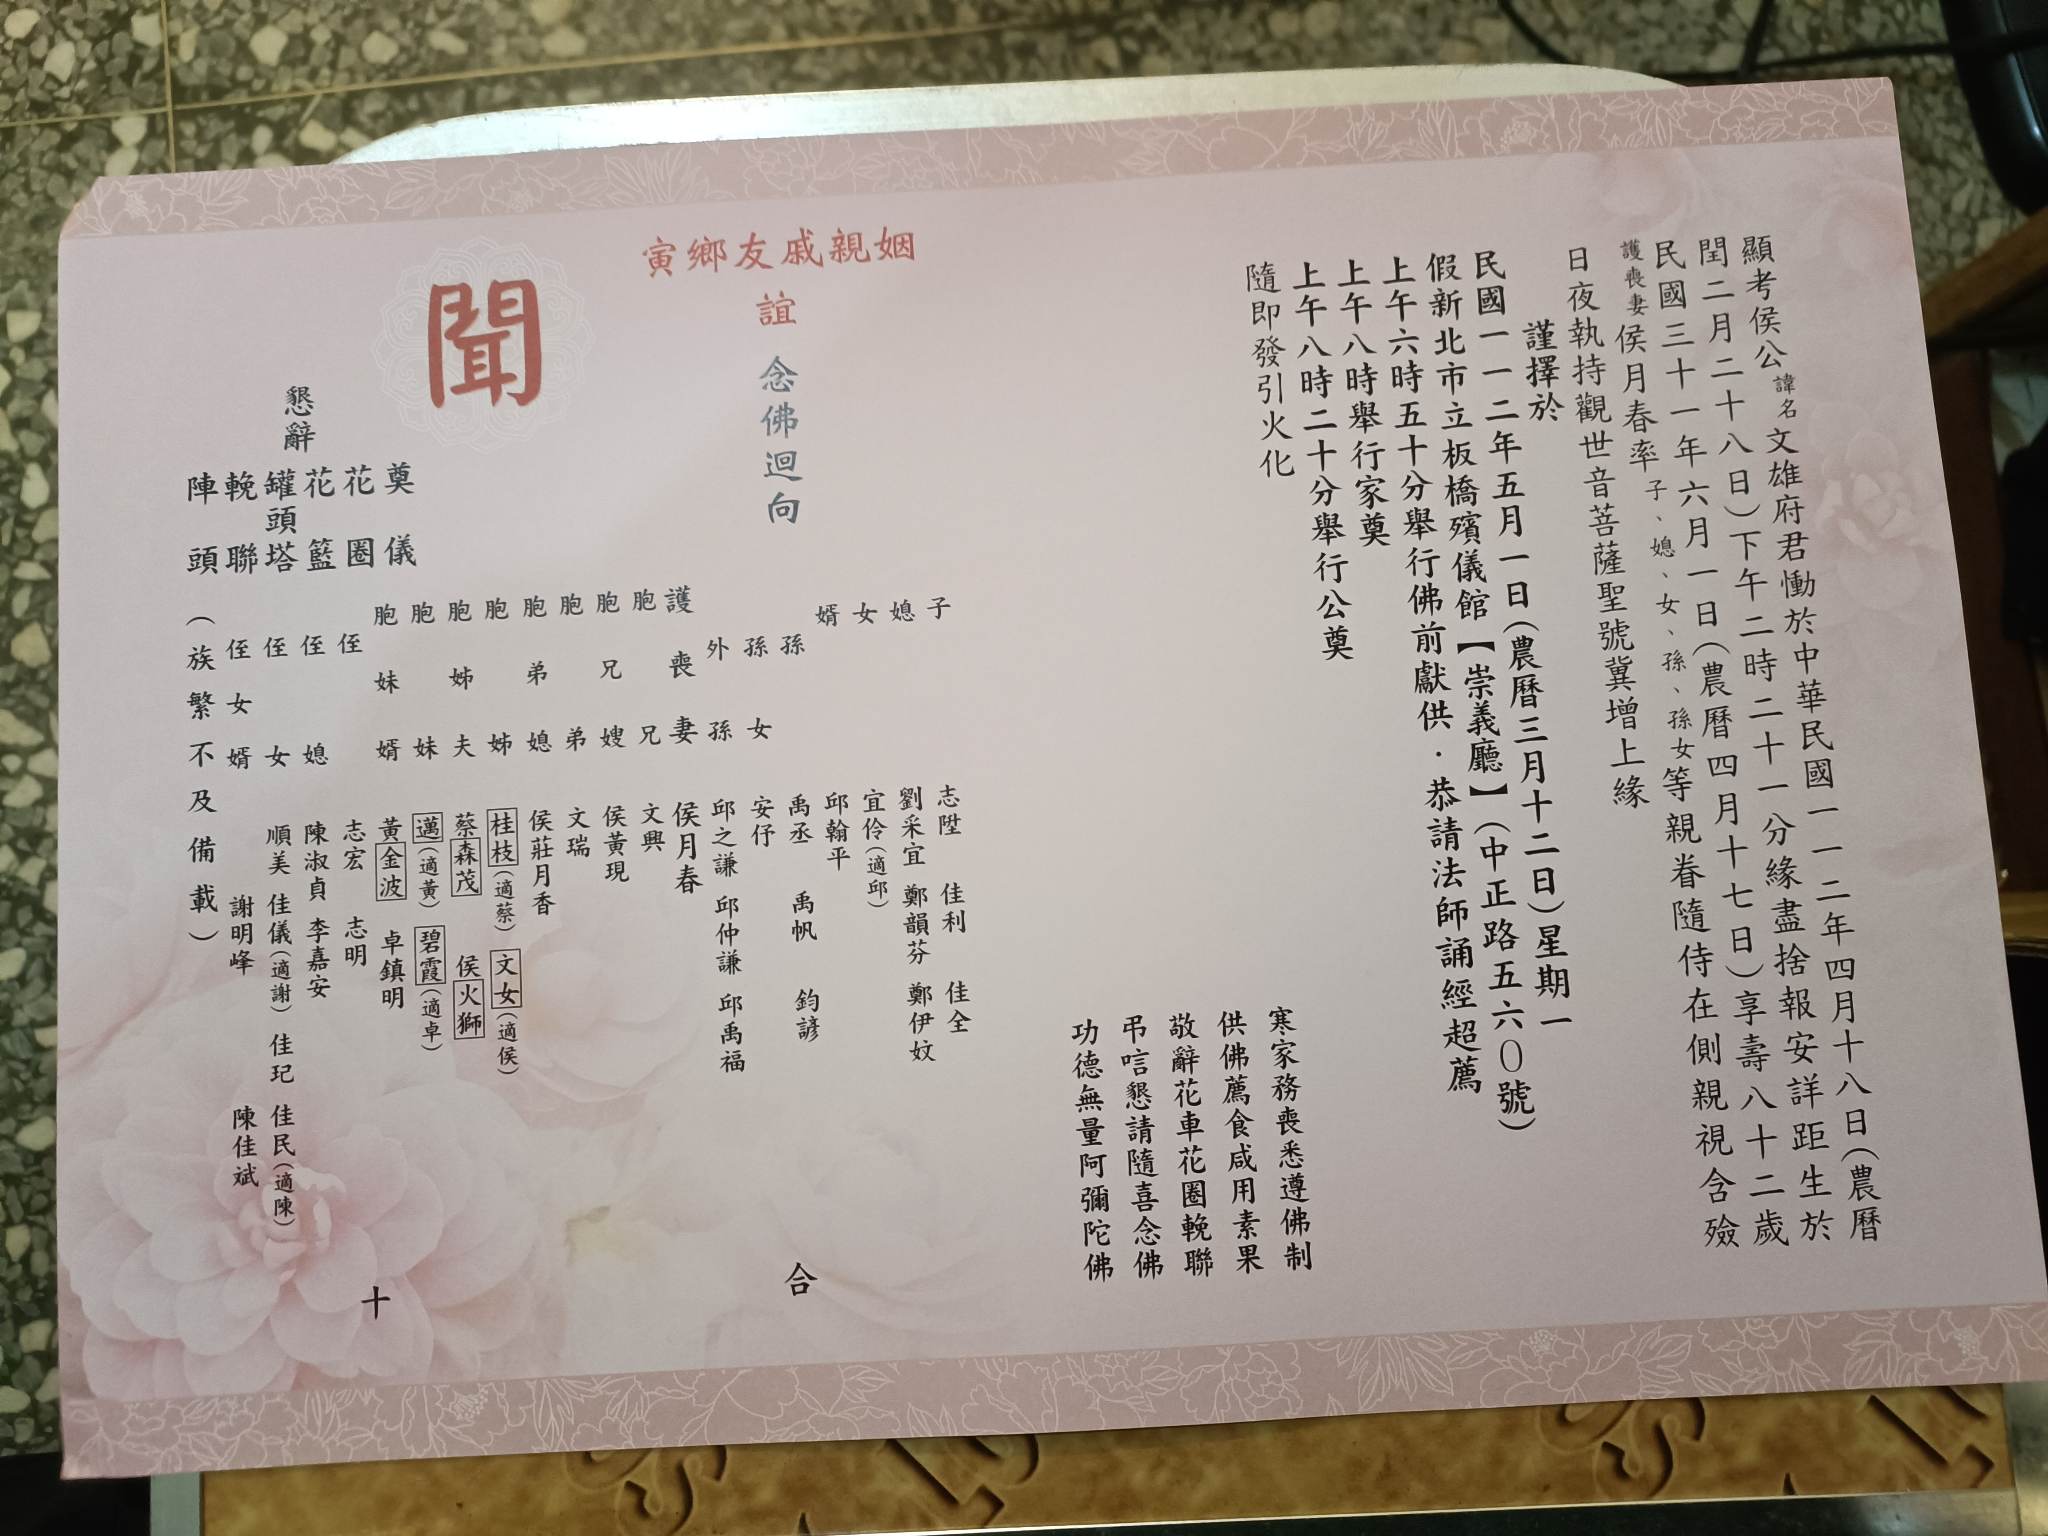 顯考侯公諱名文雄府君慟於中華民國一一二年四月十八日(農曆
閏二月二十八日)下午二時二十一分緣盡捨報安詳距生於
民國三十一年六月一日(農曆四月十七日)享壽八十二歲
護喪妻侯月春率子、媳、女、孫、孫女等親眷隨侍在側親視含殮
日夜執持觀世音菩薩聖號冀增上緣
謹擇於
民國一一二年五月一日(農曆三月十二日)星期一
假新北市立板橋殯儀館【崇義廳】(中正路五六〇號)
上午六時五十分舉行佛前獻供．恭請法師誦經超薦
上午八時舉行家奠
上午八時二十分舉行公奠
隨即發引火化
寒家務喪悉遵佛制
供佛薦食咸用素果
敬辭花車花圈輓聯
弔唁懇請隨喜念佛
功德無量阿彌陀佛
姻親戚友鄉寅
誼
念佛迴向
聞
懇辭
奠儀
花圈
花籃
罐頭塔
輓聯
陣頭
子 志陞 佳利 佳全
媳 劉采宜 鄭韻芬 鄭伊妏
女 宜伶(適邱)
婿 邱翰平
孫 禹丞 禹帆 鈞諺
孫女 安伃
外孫 邱之謙 邱仲謙 邱禹福
護喪妻 侯月春
胞兄 文興
胞兄嫂 侯黃現
胞弟 文瑞
胞弟媳 侯莊月香
胞姊 桂枝(適蔡) 文女(適侯)
胞姊夫 蔡森茂 侯火獅
胞妹 邁(適黃) 碧霞(適卓)
胞妹婿 黃金波 卓鎮明
侄 志宏 志明
侄媳 陳淑貞 李嘉安
侄女 順美 佳儀(適謝) 佳玘 佳民(適陳)
侄女婿 謝明峰 陳佳斌
(族繁不及備載)
合
十